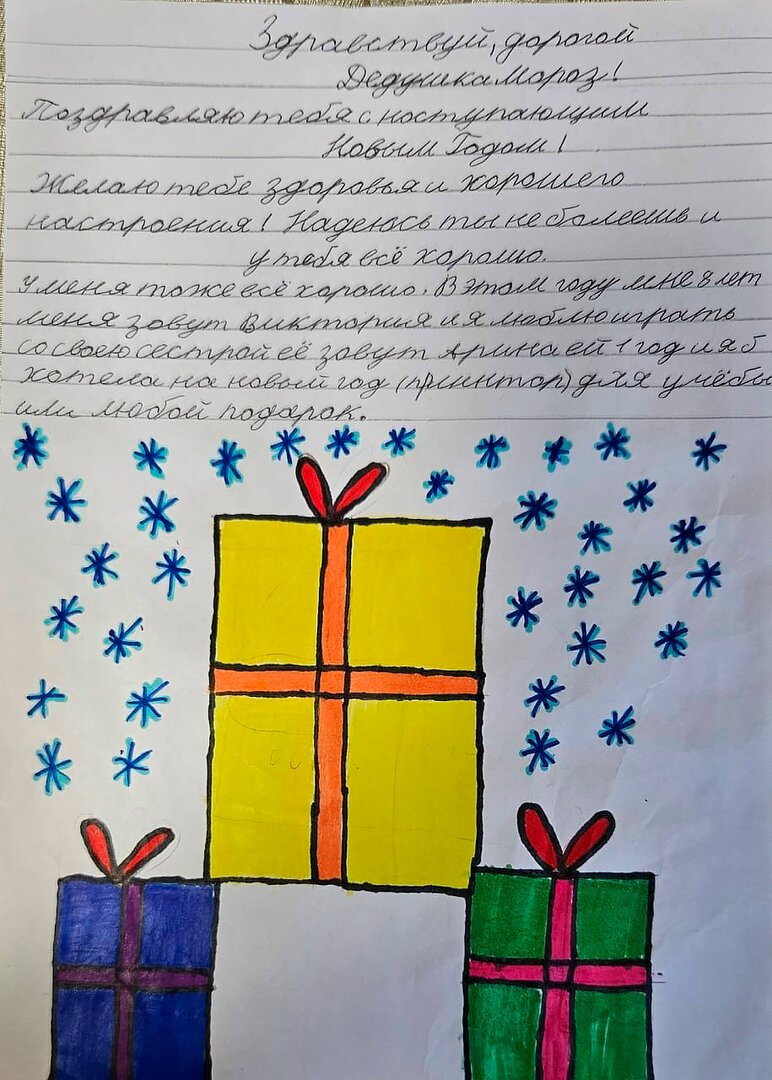 Здравствуй, дорогой
Дедушка мороз!
Поздравляю тебя с наступающим
Новым Годом!
Желаю тебе здоровья и хорошего
настроения! Надеюсь ты не болеешь и
у тебя всё хорошо.
У меня тоже всё хорошо. В этом году мне 8 лет
меня зовут Виктория и я люблю играть
со своею сестрой её зовут Арина ей 1 год и я б
хотела на новый год (принтор) для учёбы
или любой подарок.